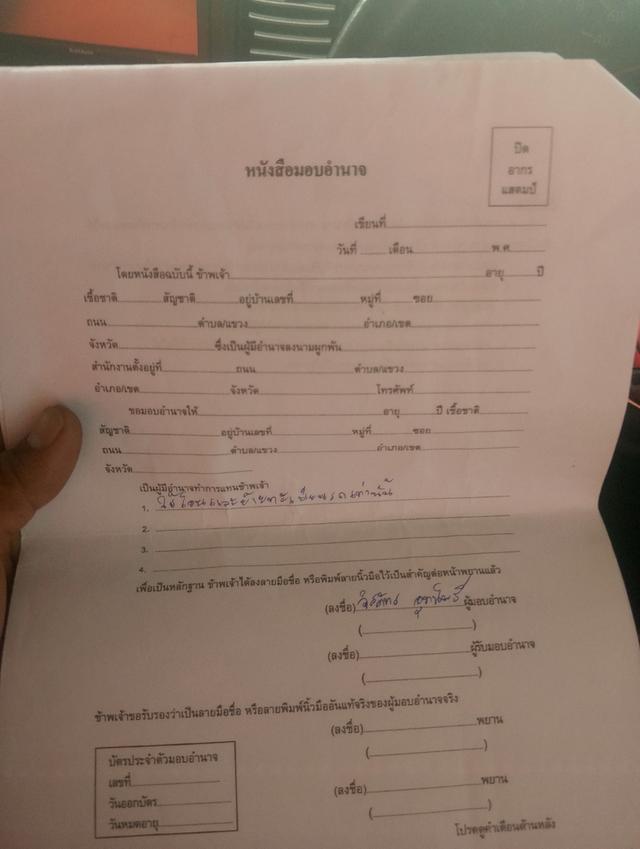 หนังสือมอบอำนาจ
ปิด
อากร
แสตมป์
เขียนที่
วันที่ เดือน พ.ศ.
โดยหนังสือฉบับนี้ ข้าพเจ้า อายุ ปี
เชื้อชาติ สัญชาติ อยู่บ้านเลขที่ หมู่ที่ ซอย
ถนน ตำบล/แขวง อำเภอ/เขต
จังหวัด ซึ่งเป็นผู้มีอำนาจลงนามผูกพัน
สำนักงานตั้งอยู่ที่ ถนน ตำบล/แขวง
อำเภอ/เขต จังหวัด โทรศัพท์
ขอมอบอำนาจให้ อายุ ปี เชื้อชาติ
สัญชาติ อยู่บ้านเลขที่ หมู่ที่ ซอย
ถนน ตำบล/แขวง อำเภอ/เขต
จังหวัด
เป็นผู้มีอำนาจทำการแทนข้าพเจ้า
1. ใช้โอนและย้ายทะเบียนรถเท่านั้น
2.
3.
4.
เพื่อเป็นหลักฐาน ข้าพเจ้าได้ลงลายมือชื่อ หรือพิมพ์ลายนิ้วมือไว้เป็นสำคัญต่อหน้าพยานแล้ว
(ลงชื่อ) ผู้มอบอำนาจ
( )
(ลงชื่อ) ผู้รับมอบอำนาจ
( )
ข้าพเจ้าขอรับรองว่าเป็นลายมือชื่อ หรือลายพิมพ์นิ้วมืออันแท้จริงของผู้มอบอำนาจจริง
(ลงชื่อ) พยาน
( )
(ลงชื่อ) พยาน
( )
บัตรประจำตัวมอบอำนาจ
เลขที่
วันออกบัตร
วันหมดอายุ
โปรดดูคำเตือนด้านหลัง